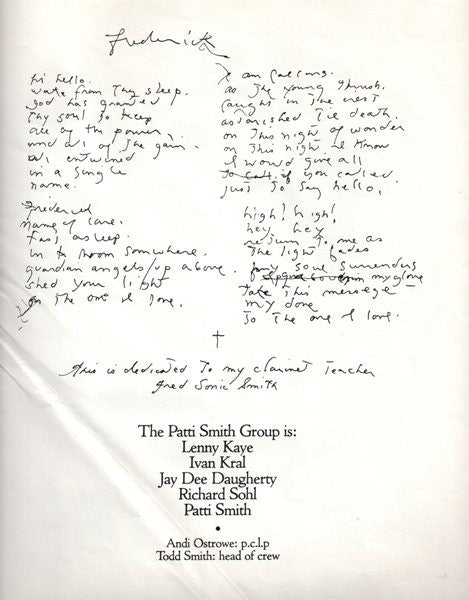 Frederick
hi hello.
wake from thy sleep.
god has granted
thy soul to keep
all of the power
and all of the gain.
all entwined
in a single
name.
Frederick
name of care.
fast asleep.
in a room somewhere.
guardian angels/up above.
shed your light
on the one I love.
I am
as the young
caught in the
astonished til death.
on this night of wonder
on this night I know
I would give all
if you called.
just to say hello.
high! high!
hey. hey
return to me as
the light fades
my soul surrenders
my
take this message
my dove
to the one I love.
†
this is dedicated to my clarinet teacher
Fred Sonic Smith
The Patti Smith Group is:
Lenny Kaye
Ivan Kral
Jay Dee Daugherty
Richard Sohl
Patti Smith
•
Andi Ostrowe: p.c.l.p
Todd Smith: head of crew